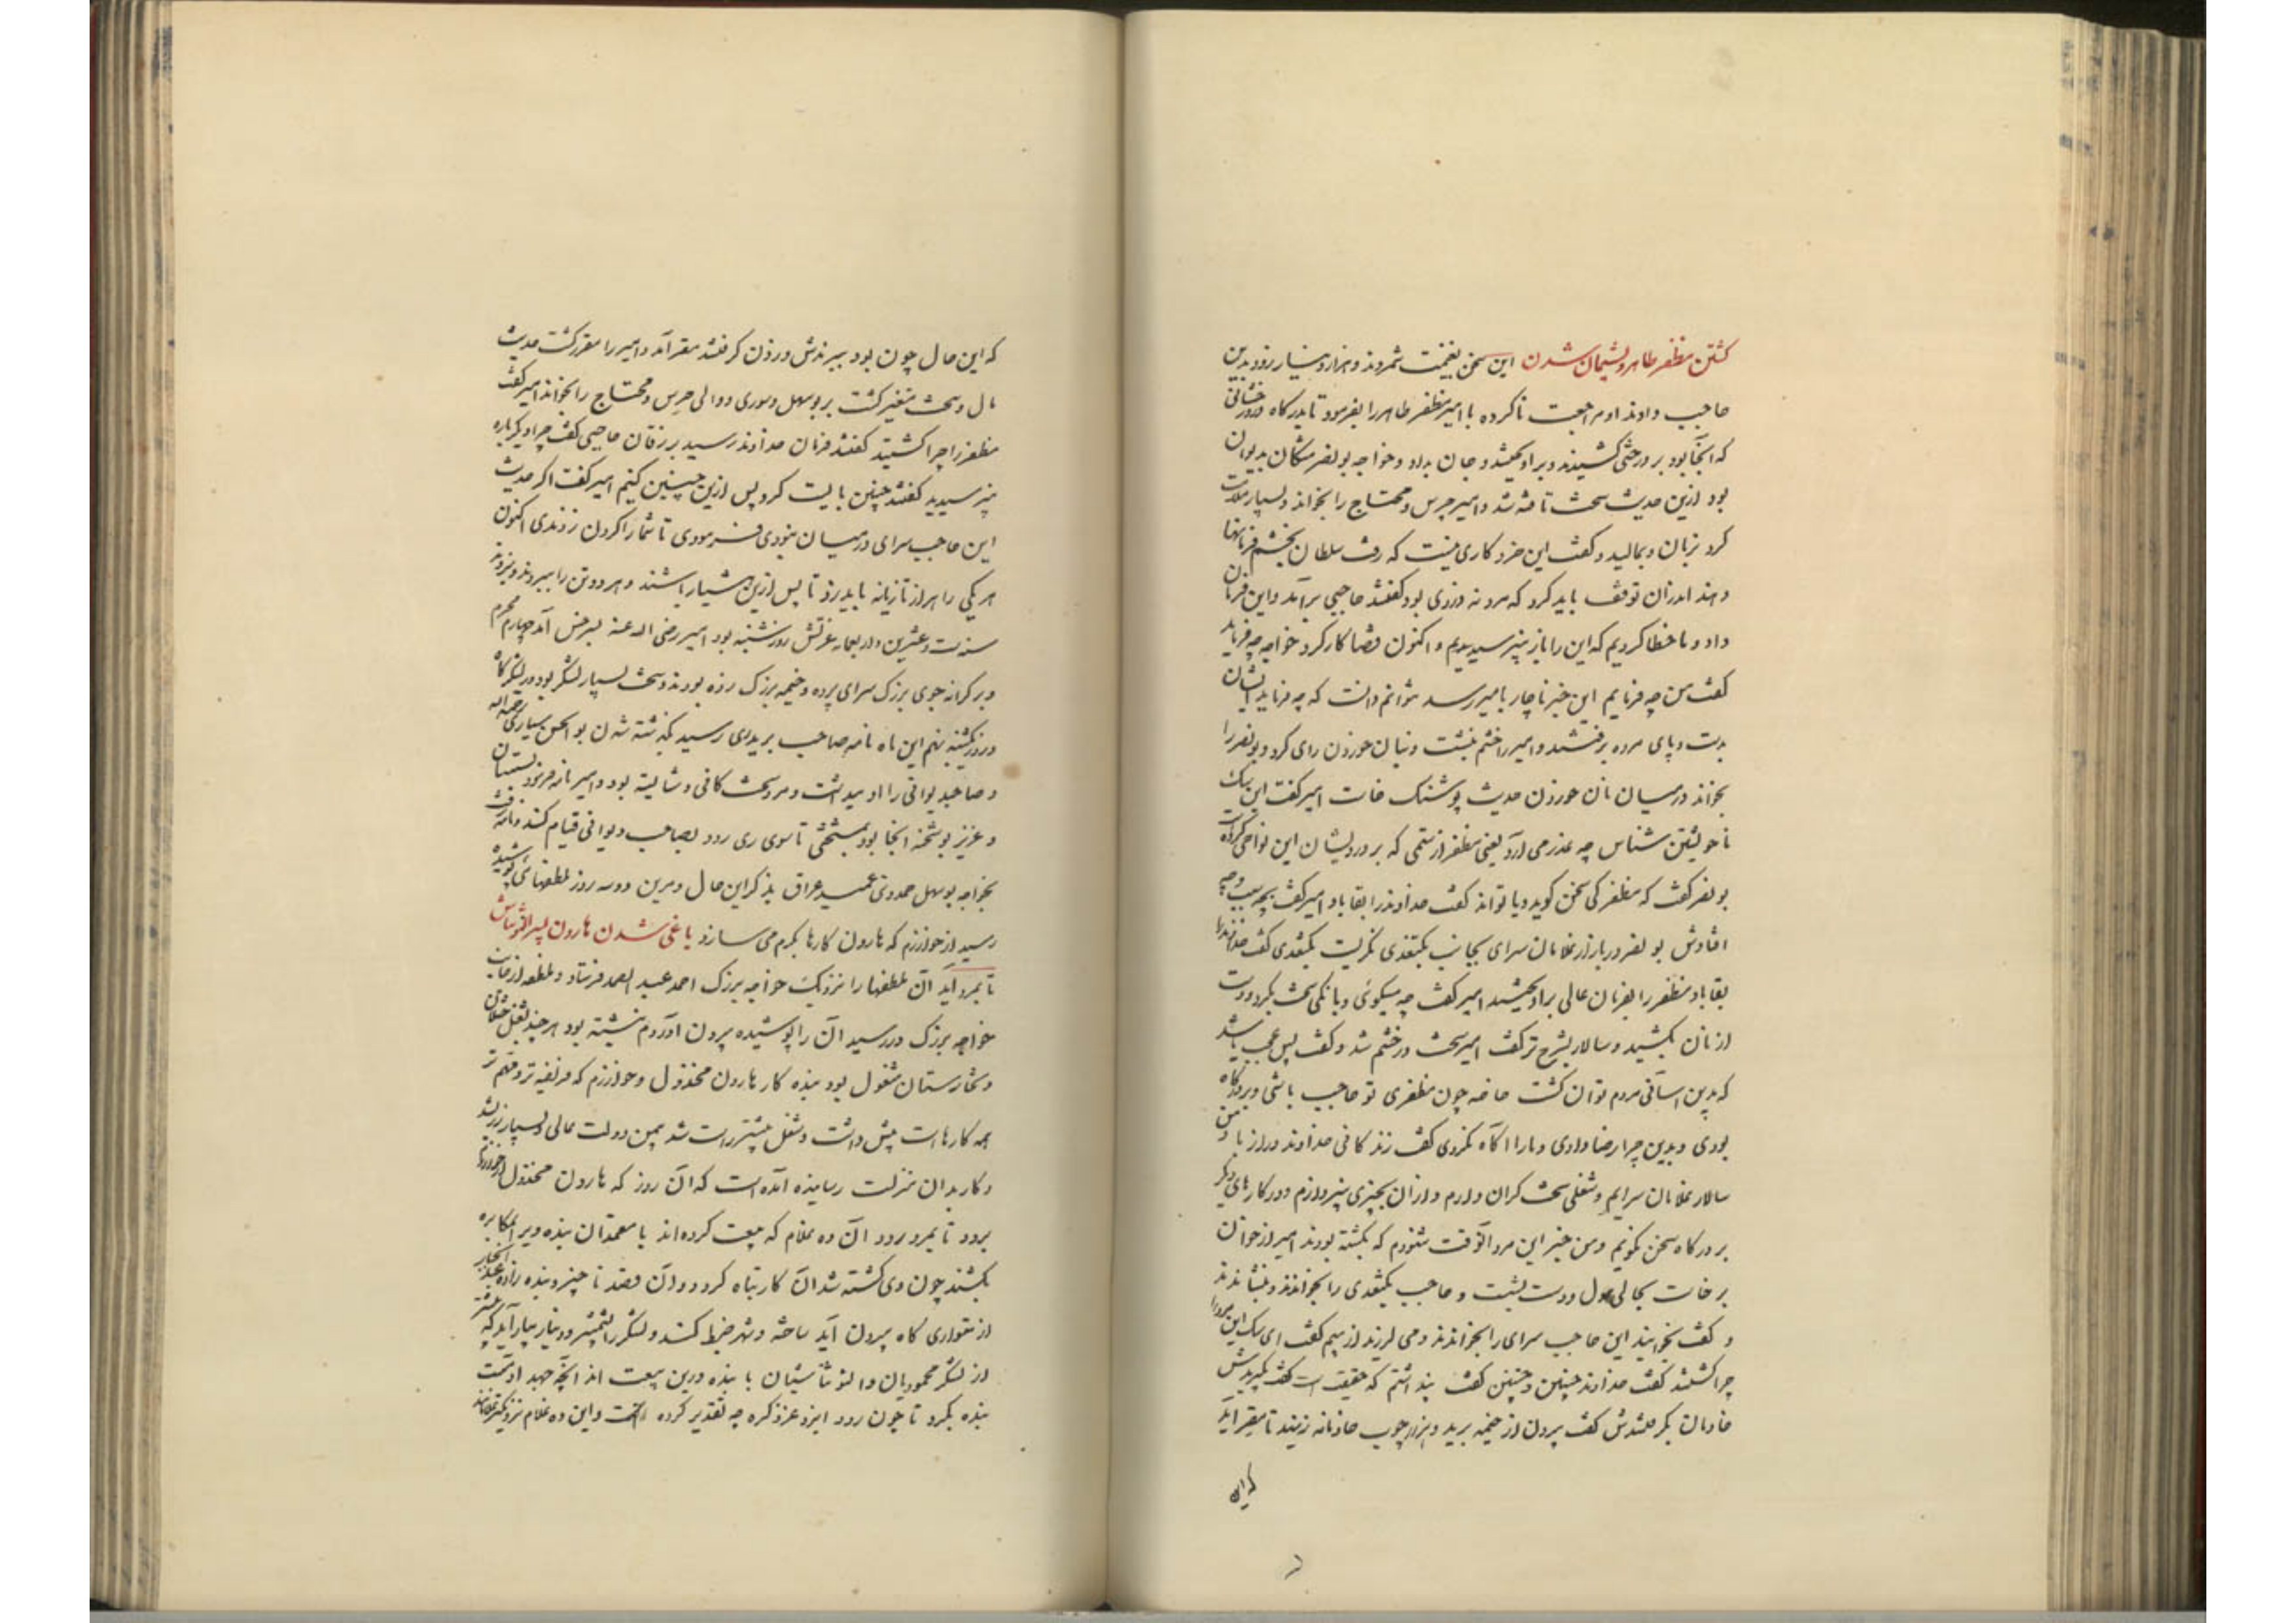 کشتن مظفر طاهر و پشیمان شدن این سخن بغنیمت شمردند و هزار دینار زود بدین
حاجب دادند او مراجعت ناکرده با امیر مظفر طاهر را بفرمود تا بدرکاه و درختانی
که آنجا بود بر درختی کشیدند و برآویختند و جان بداد و خواجه بونصر مشکان بدیوان
بود ازین حدیث سخت تافته شد و امیر حرس و محتاج را بخواند و بسیار ملامت
کرد بزبان و بمالید و کفت این خرد کاری نیست که رفت سلطان بخشم فرمانها
دهد اندران توقف باید کرد که مرد نه دزدی بود کفتند حاجبی برآمد و این فرمان
داد و ما خطا کردیم که این را باز نپرسیدیم و اکنون قضا کار کرد خواجه چه فرماید
کفت من چه فرمایم این خبر ناچار بامیر رسد نتوانم دانست که چه فرماید ایشان
بدست و پای مرده برفتند و امیر را خشم بنشست و نان خوردن رای کرد و بونصر را
بخواند در میان نان خوردن حدیث پوشنک خاست امیر کفت این سک
ناخویشتن شناس چه عذر می آرد یعنی مظفر از ستمی که بر درویشان این نواحی کرده است
بونصر کفت که مظفر کی سخن کوید و یا تواند کفت خداوند را بقا باد امیر کفت بچه سبب و چه
افتادش بونصر در سالار غلامان سرای بجانب بکتغدی نکریست بکتغدی کفت خداوند را
بقا باد مظفر را بفرمان عالی برآویختند امیر کفت چه میکوئی و بانکی سخت بکرد و دست
از نان بکشید و سالار بشرح تر کفت امیر سخت در خشم شد و کفت بس عجب باشد
که بدین آسانی مردم توان کشت خاصه چون مظفری تو حاجب باشی و بر درکاه
بودی و بدین چرا رضا دادی و ما را آکاه نکردی کفت زندکانی خداوند دراز باد من
سالار غلامان سرایم و شغلی سخت کران دارم و از آن بچیزی نپردازم و در کارهای دیکر
بر درکاه سخن نکویم و من خبر این مرد آنوقت شنودم که بکشته بودند امیر از خوان
برخاست بحالی هول و دست بشست و حاجب بکتغدی را بخواندند و بنشاندند
و کفت بخوانید این حاجب سرای را بخواندند و می لرزید از بیم کفت ای سک این مرد را
چرا کشتند کفت خداوند چنین و چنین کفت پنداشتم که حقیقت است کفت بکیریدش
خادمان بکرفتندش کفت بیرون از خیمه برید و هزار چوب خادمانه زنید تا مقر آید
که این
که این حال چون بود ببردندش و زدن کرفتند مقر آمد و امیر را مقرر کشت حدیث
مال و سخت متغیر کشت بر بوسهل و سوری و والی حرس و محتاج را بخواند امیر کفت
مظفر را چرا کشتید کفتند فرمان خداوند رسید بر زفان حاجبی کفت چرا دیکرباره
نپرسیدید کفتند چنین بایست کرد پس ازین چنین کنیم امیر کفت اکر حدیث
این حاجب سرای در میان نبودی فرمودی تا شما را کردن زدندی اکنون
هر یکی را هزار تازیانه باید زد تا پس ازین هشیار باشند و هر دو تن را ببردند و بزدند
سنه ست و عشرین و اربعمایه غرتش روز شنبه بود امیر رضی الله عنه بسرخس آمد چهارم محرم
و بر کرانه جوی بزرک سرای پرده و خیمه بزرک زده بودند و سخت بسیار لشکر بود در لشکرکاه
و روز یکشنبه نهم این ماه نامه صاحب برید ری رسید بکذشته شدن بوالحسن سیاری رحمه الله
و صاحبدیوانی را او میداشت و مرد سخت کافی و شایسته بود و امیر نامه فرمود بسیستان
و عزیز بوشحنه آنجا بود بمستحثی تا سوی ری رود بصاحب دیوانی قیام کند و نامه رفت
بخواجه بوسهل حمدوی عمید عراق بذکر این حال و مرین دو سه روز ملطفهای پوشیده
رسید از خوارزم که هارون کارها بکرم می سازد یاغی شدن هارون پسر التونتاش
تا بمرو آید آن ملطفها را نزدیک خواجه بزرک احمد عبدالصمد فرستاد و ملطفه از جانب
خواجه بزرک در رسید آن را پوشیده بیرون آوردم نبشته بود هر چند بشغل ختلان
و تخارستان مشغول بود بنده کار هارون مخذول و خوارزم که فریضه تر و مهم تر
همه کارهاست پیش داشت و شغل بیشتر راست شد بیمن دولت عالی و بسیار زر بشد
و کار بدان منزلت رسانیده آمده است که آن روز که هارون مخذول از خوارزم
برود تا بمرو رود آن ده غلام که بیعت کرده اند با معتمدان بنده وی را بمکابره
بکشند چون وی کشته شد آن کار تباه کردد و آن قصد ناچیز و بنده زاده عبدالجبار
از متواری کاه بیرون آید ساخته و شهر ضبط کند و لشکر را بشمشیر و دینار بیارآید که بیشتر
از لشکر محمودیان و التونتاشیان با بنده درین بیعت اند آنچه جهد آدمیست
بنده بکرد تا چون رود ایزد عز ذکره چه تقدیر کرده است و این ده غلام نزدیکتر غلامانند